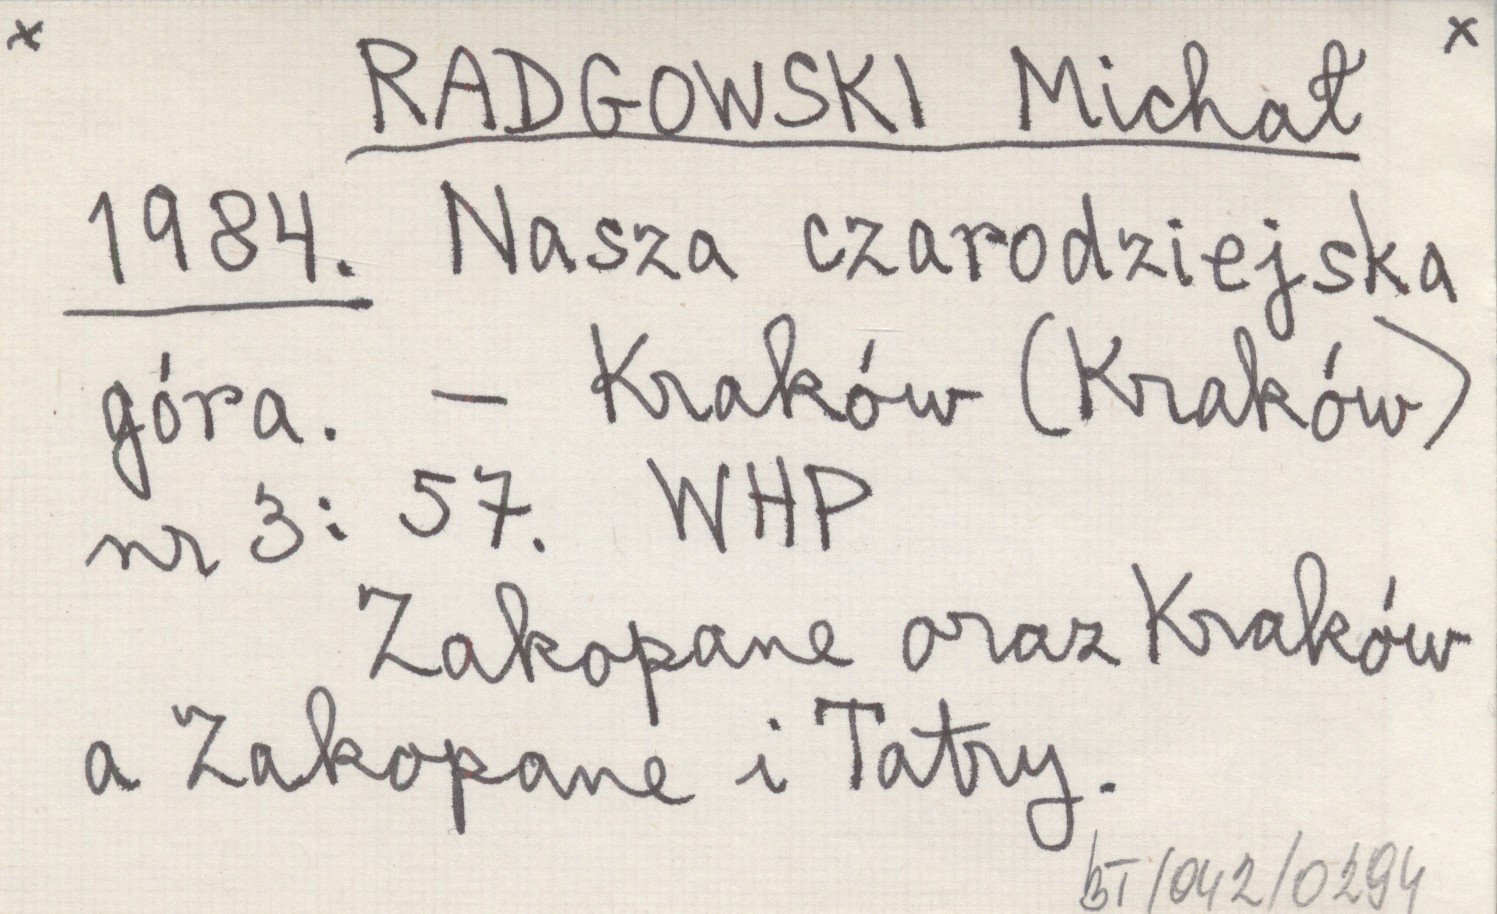 x x
RADGOWSKI Michał
1984. Nasza czarodziejska
góra. — Kraków (Kraków)
nr 3: 57. WHP
Zakopane oraz Kraków
a Zakopane i Tatry.
BT/042/0294